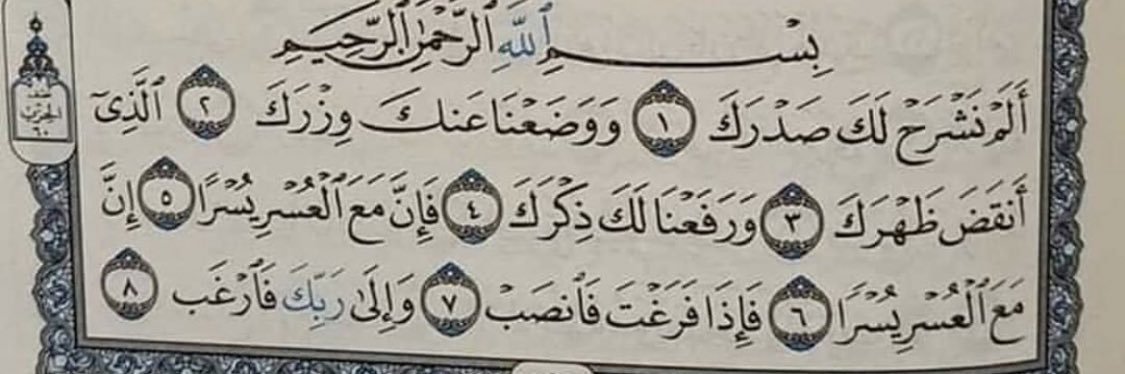 بِسْمِ ٱللَّهِ ٱلرَّحْمَٰنِ ٱلرَّحِيمِ
أَلَمْ نَشْرَحْ لَكَ صَدْرَكَ ١ وَوَضَعْنَا عَنكَ وِزْرَكَ ٢ ٱلَّذِىٓ
أَنقَضَ ظَهْرَكَ ٣ وَرَفَعْنَا لَكَ ذِكْرَكَ ٤ فَإِنَّ مَعَ ٱلْعُسْرِ يُسْرًا ٥ إِنَّ
مَعَ ٱلْعُسْرِ يُسْرًا ٦ فَإِذَا فَرَغْتَ فَٱنصَبْ ٧ وَإِلَىٰ رَبِّكَ فَٱرْغَب ٨
الحزب
٦٠